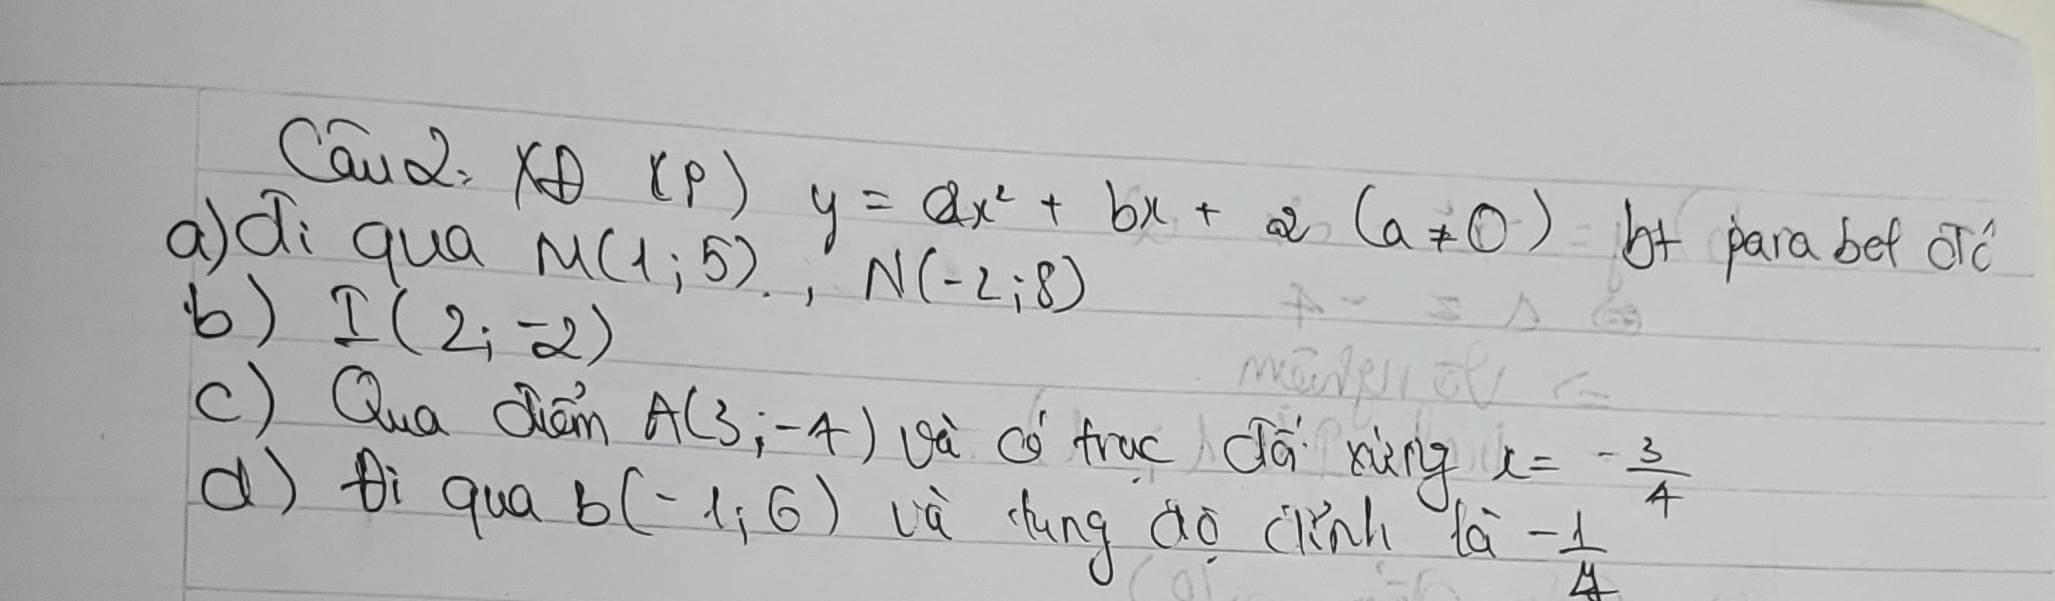 Câu 2: XĐ (P) y = ax² + bx + 2 (a ≠ 0) bt parabol đó
a) đi qua M(1; 5)., N(-2; 8)
b) I(2; -2)
c) Qua điểm A(3; -4) và có trục đối xứng x = -3/4
d) Đi qua b(-1; 6) và tung độ đỉnh là -1/4